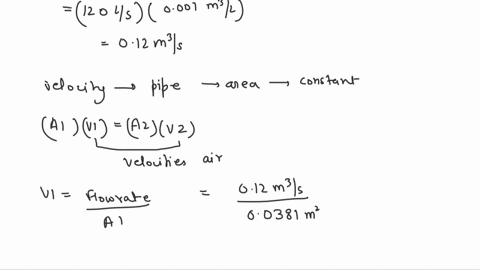 = (120 L/s) ( 0.001 m³/L)
= 0.12 m³/s
velocity → pipe → area → constant
(A1) (V1) = (A2) (V2)
velocities air
V1 = Flowrate / A1 = 0.12 m³/s / 0.0381 m²